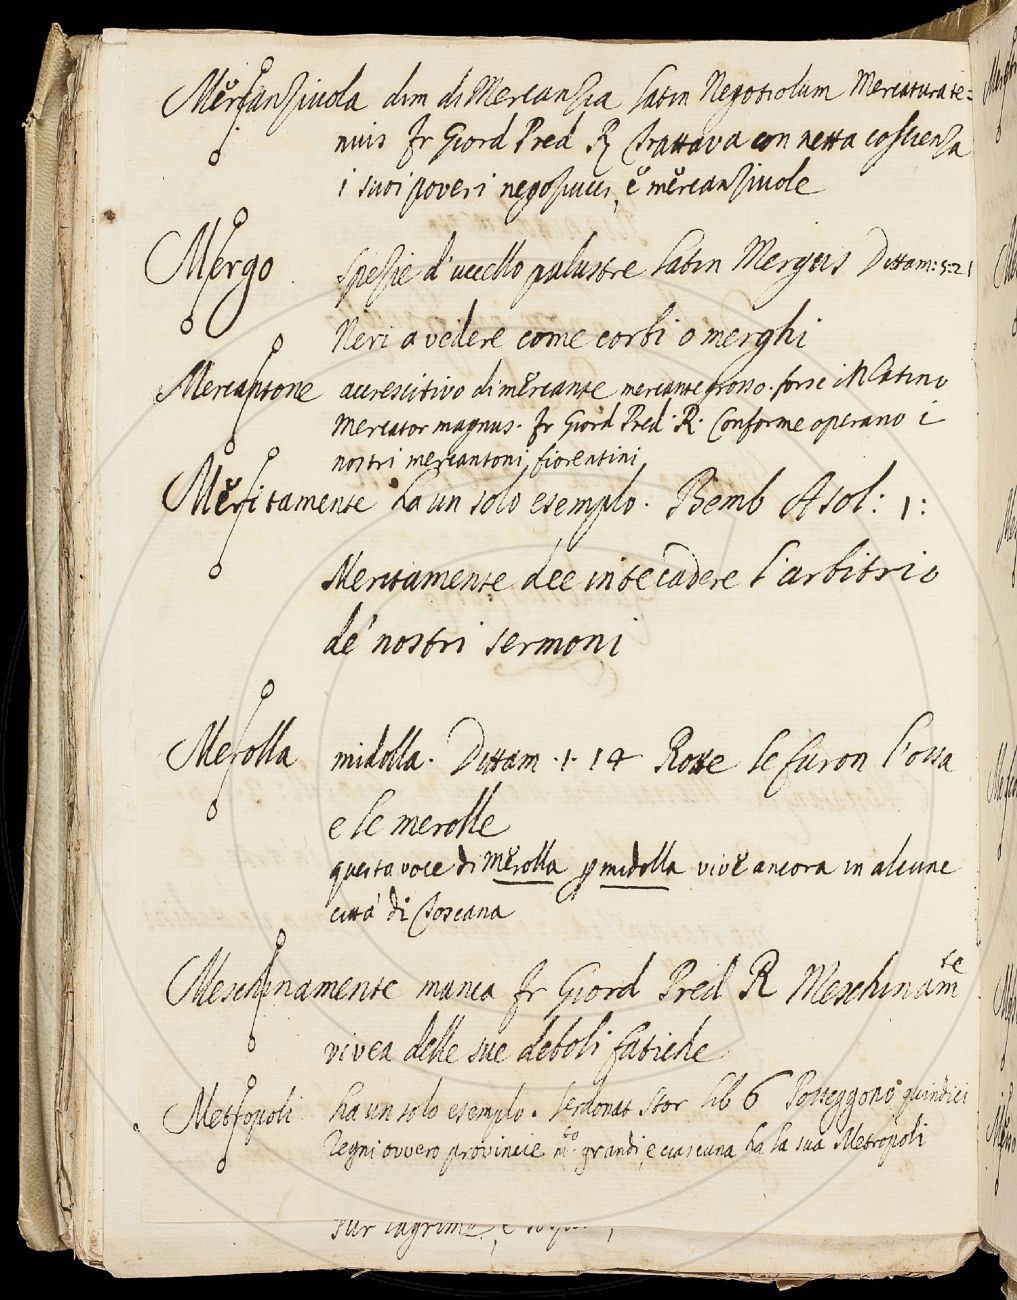 Mercanziuola dim di Mercanzia Latin Negotiolum Mercatura te=
nuis Fr Giord Pred R Trattava con netta coscienza
i suoi poveri negozucci, e mercanziuole
Mergo spezie d'uccello palustre Latin Mergus Dittam: 5: 21
Neri a vedere come corbi o merghi
Mercantone accrescitivo di mercante mercante grosso. forse in Latino
Mercator magnus. Fr Giord Pred. R. Conforme operano i
nostri mercantoni fiorentini
Meritamente ha un solo esemplo. Bemb Asol: 1:
Meritamente dee in te cadere l'arbitrio
de' nostri sermoni
Merolla midolla. Dittam. 1. 14 Rotte le furon l'ossa
e le merolle
questa voce di merolla p midolla vive ancora in alcune
città di Toscana
Meschinamente manca Fr Giord Pred R Meschinam te
vivea delle sue deboli fatiche
Metropoli ha un solo esemplo. Serdonat Stor lib 6 Posseggono quindici
Regni ovvero provincie m.to grandi, e ciascuna ha la sua Metropoli
lagrime, e